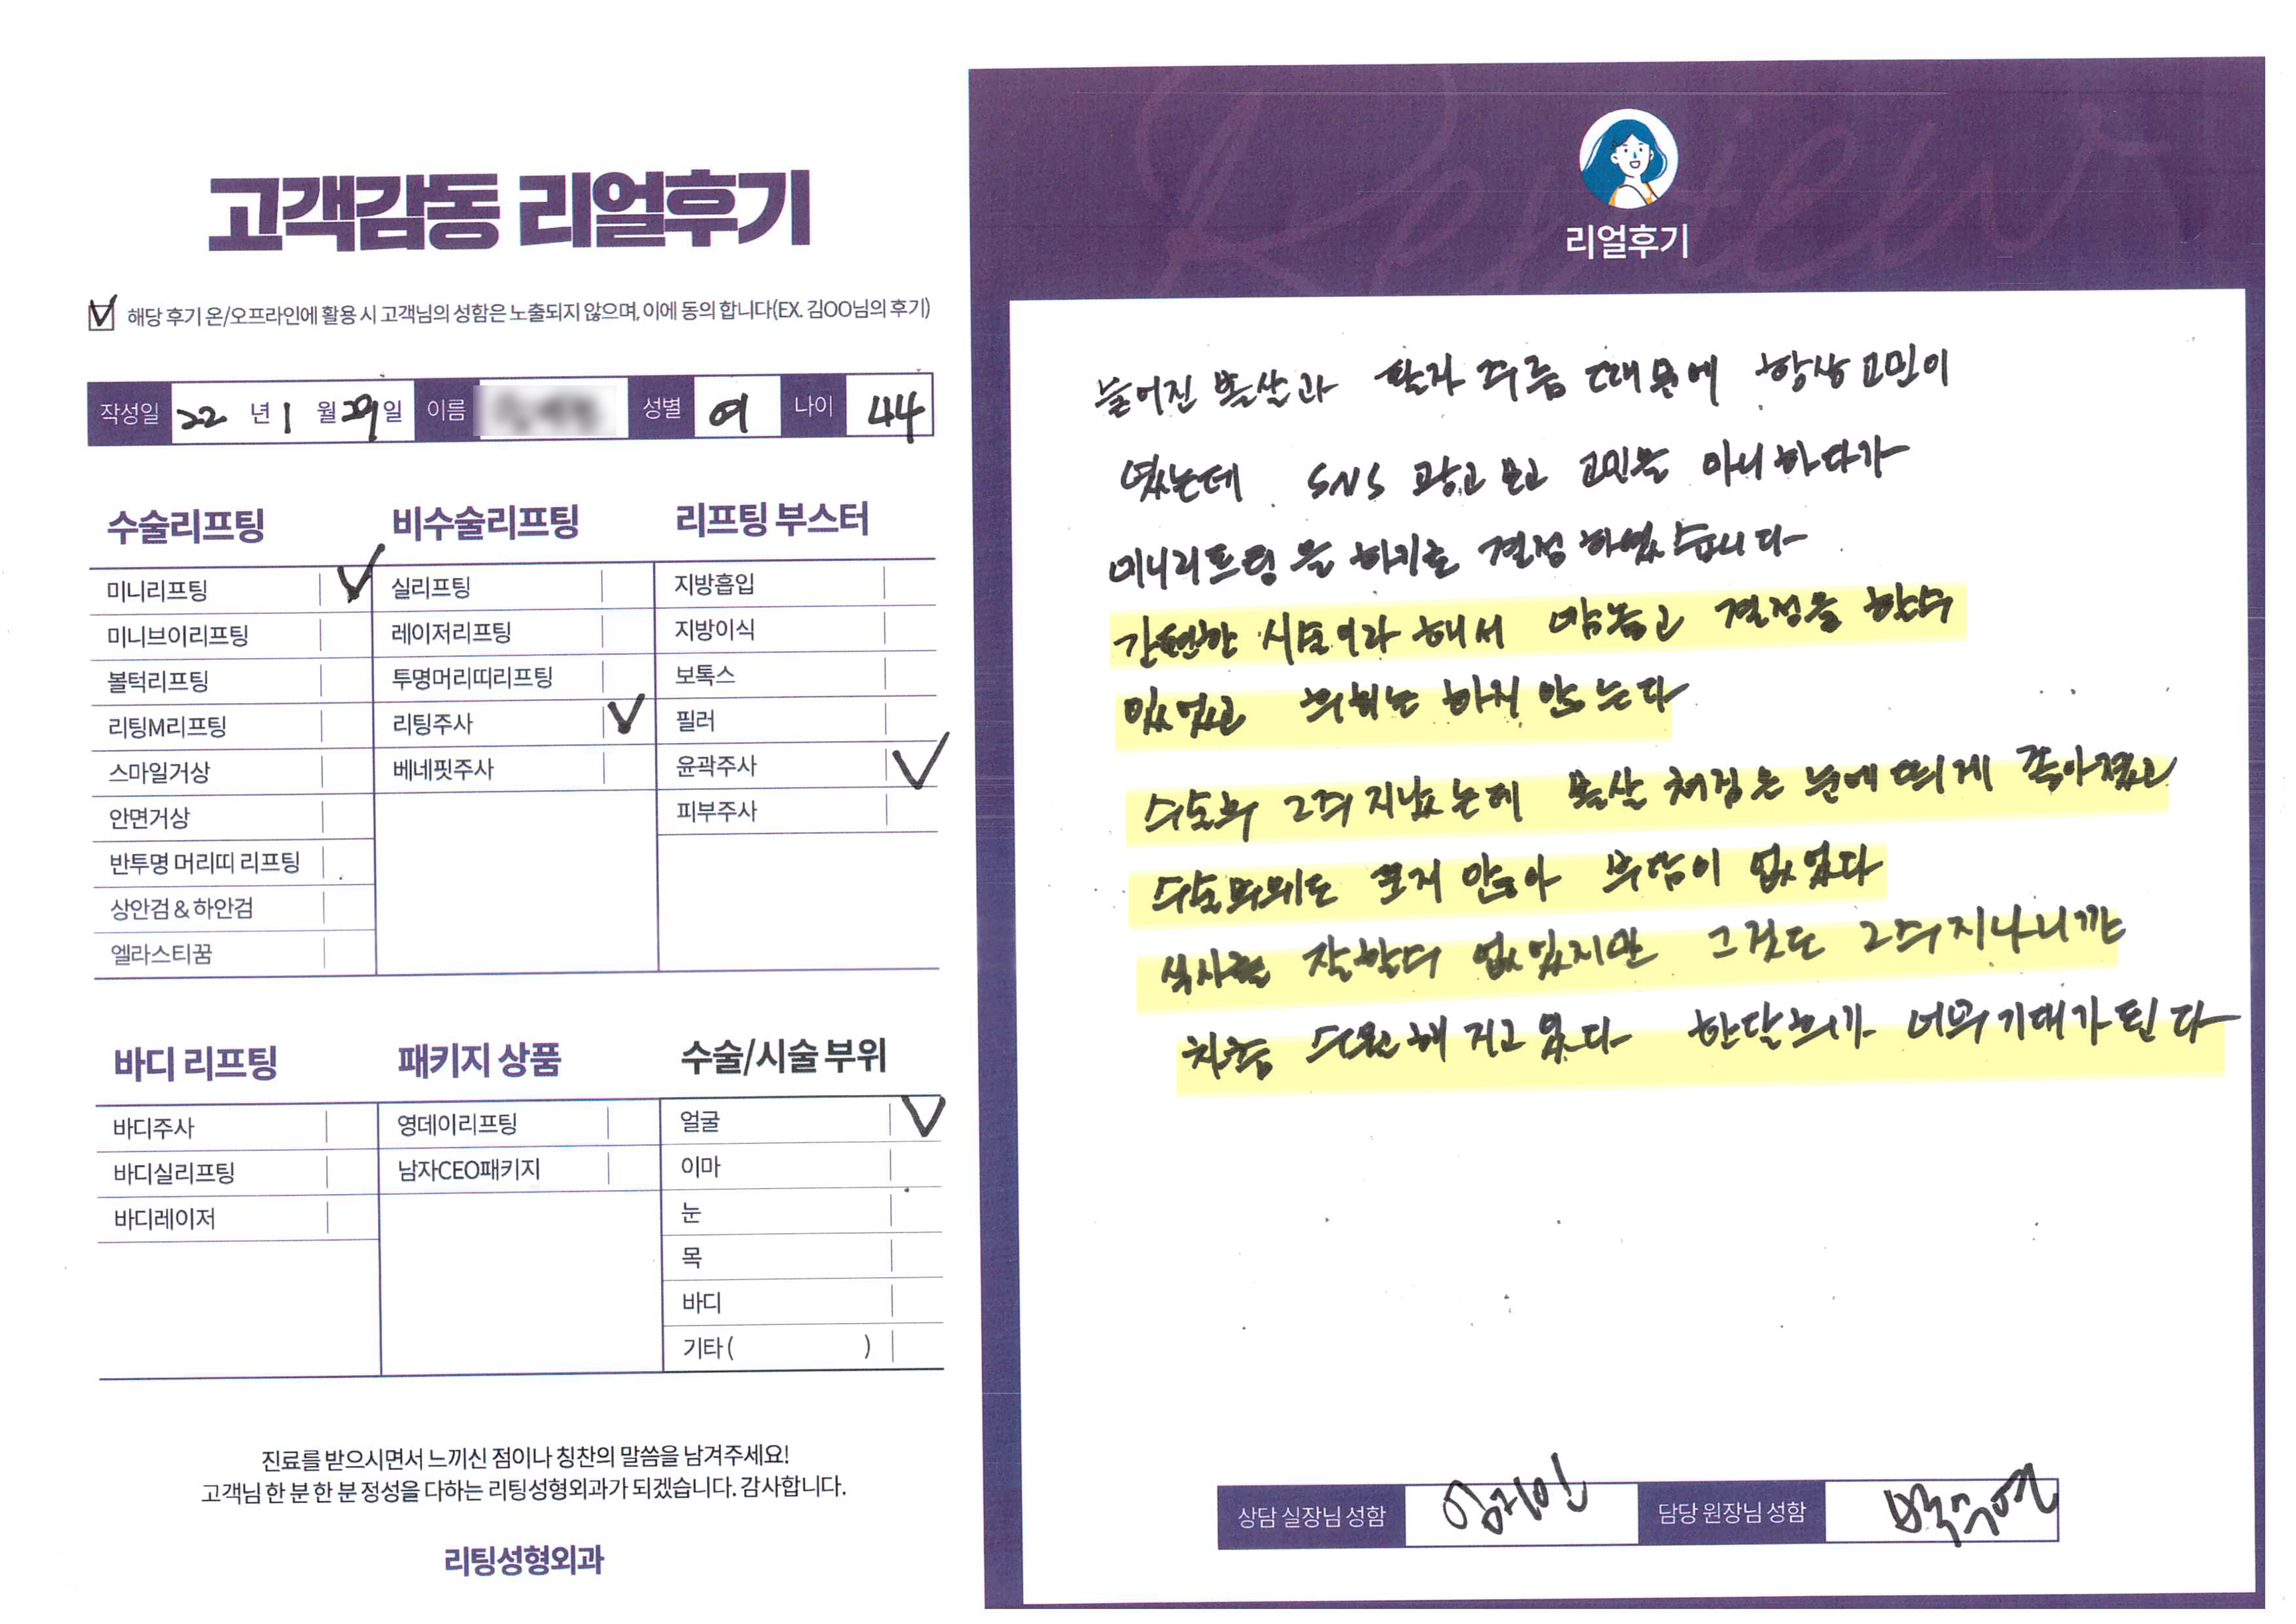 고객감동 리얼후기
해당 후기 온/오프라인에 활용 시 고객님의 성함은 노출되지 않으며, 이에 동의 합니다(EX. 김OO님의 후기)
작성일 22 년 1 월 29 일 이름 성별 여 나이 44
수술리프팅
미니리프팅
미니브이리프팅
볼턱리프팅
리팅M리프팅
스마일거상
안면거상
반투명 머리띠 리프팅
상안검 & 하안검
엘라스티꿈
비수술리프팅
실리프팅
레이저리프팅
투명머리띠리프팅
리팅주사
베네핏주사
리프팅 부스터
지방흡입
지방이식
보톡스
필러
윤곽주사
피부주사
바디 리프팅
바디주사
바디실리프팅
바디레이저
패키지 상품
영데이리프팅
남자CEO패키지
수술/시술 부위
얼굴
이마
눈
목
바디
기타 ( )
진료를 받으시면서 느끼신 점이나 칭찬의 말씀을 남겨주세요!
고객님 한 분 한 분 정성을 다하는 리팅성형외과가 되겠습니다. 감사합니다.
리팅성형외과
Review
리얼후기
늘어진 볼살과 팔자 주름 때문에 항상 고민이
였는데 SNS 광고 보고 고민을 마니 하다가
미니리프팅을 하기로 결정 하였습니다
간편한 시술이라 해서 맘놓고 결정을 할수
있었고 후회는 하지 안는다
수술후 2주 지났는데 볼살 처짐은 눈에 띄게 좋아졌고
수술부위도 크지 안아 부담이 없었다
식사를 잘할수 없었지만 그것도 2주 지나니까
차츰 수월해 지고 있다 한달후가 너무 기대가 된다
상담 실장님 성함 담당 원장님 성함